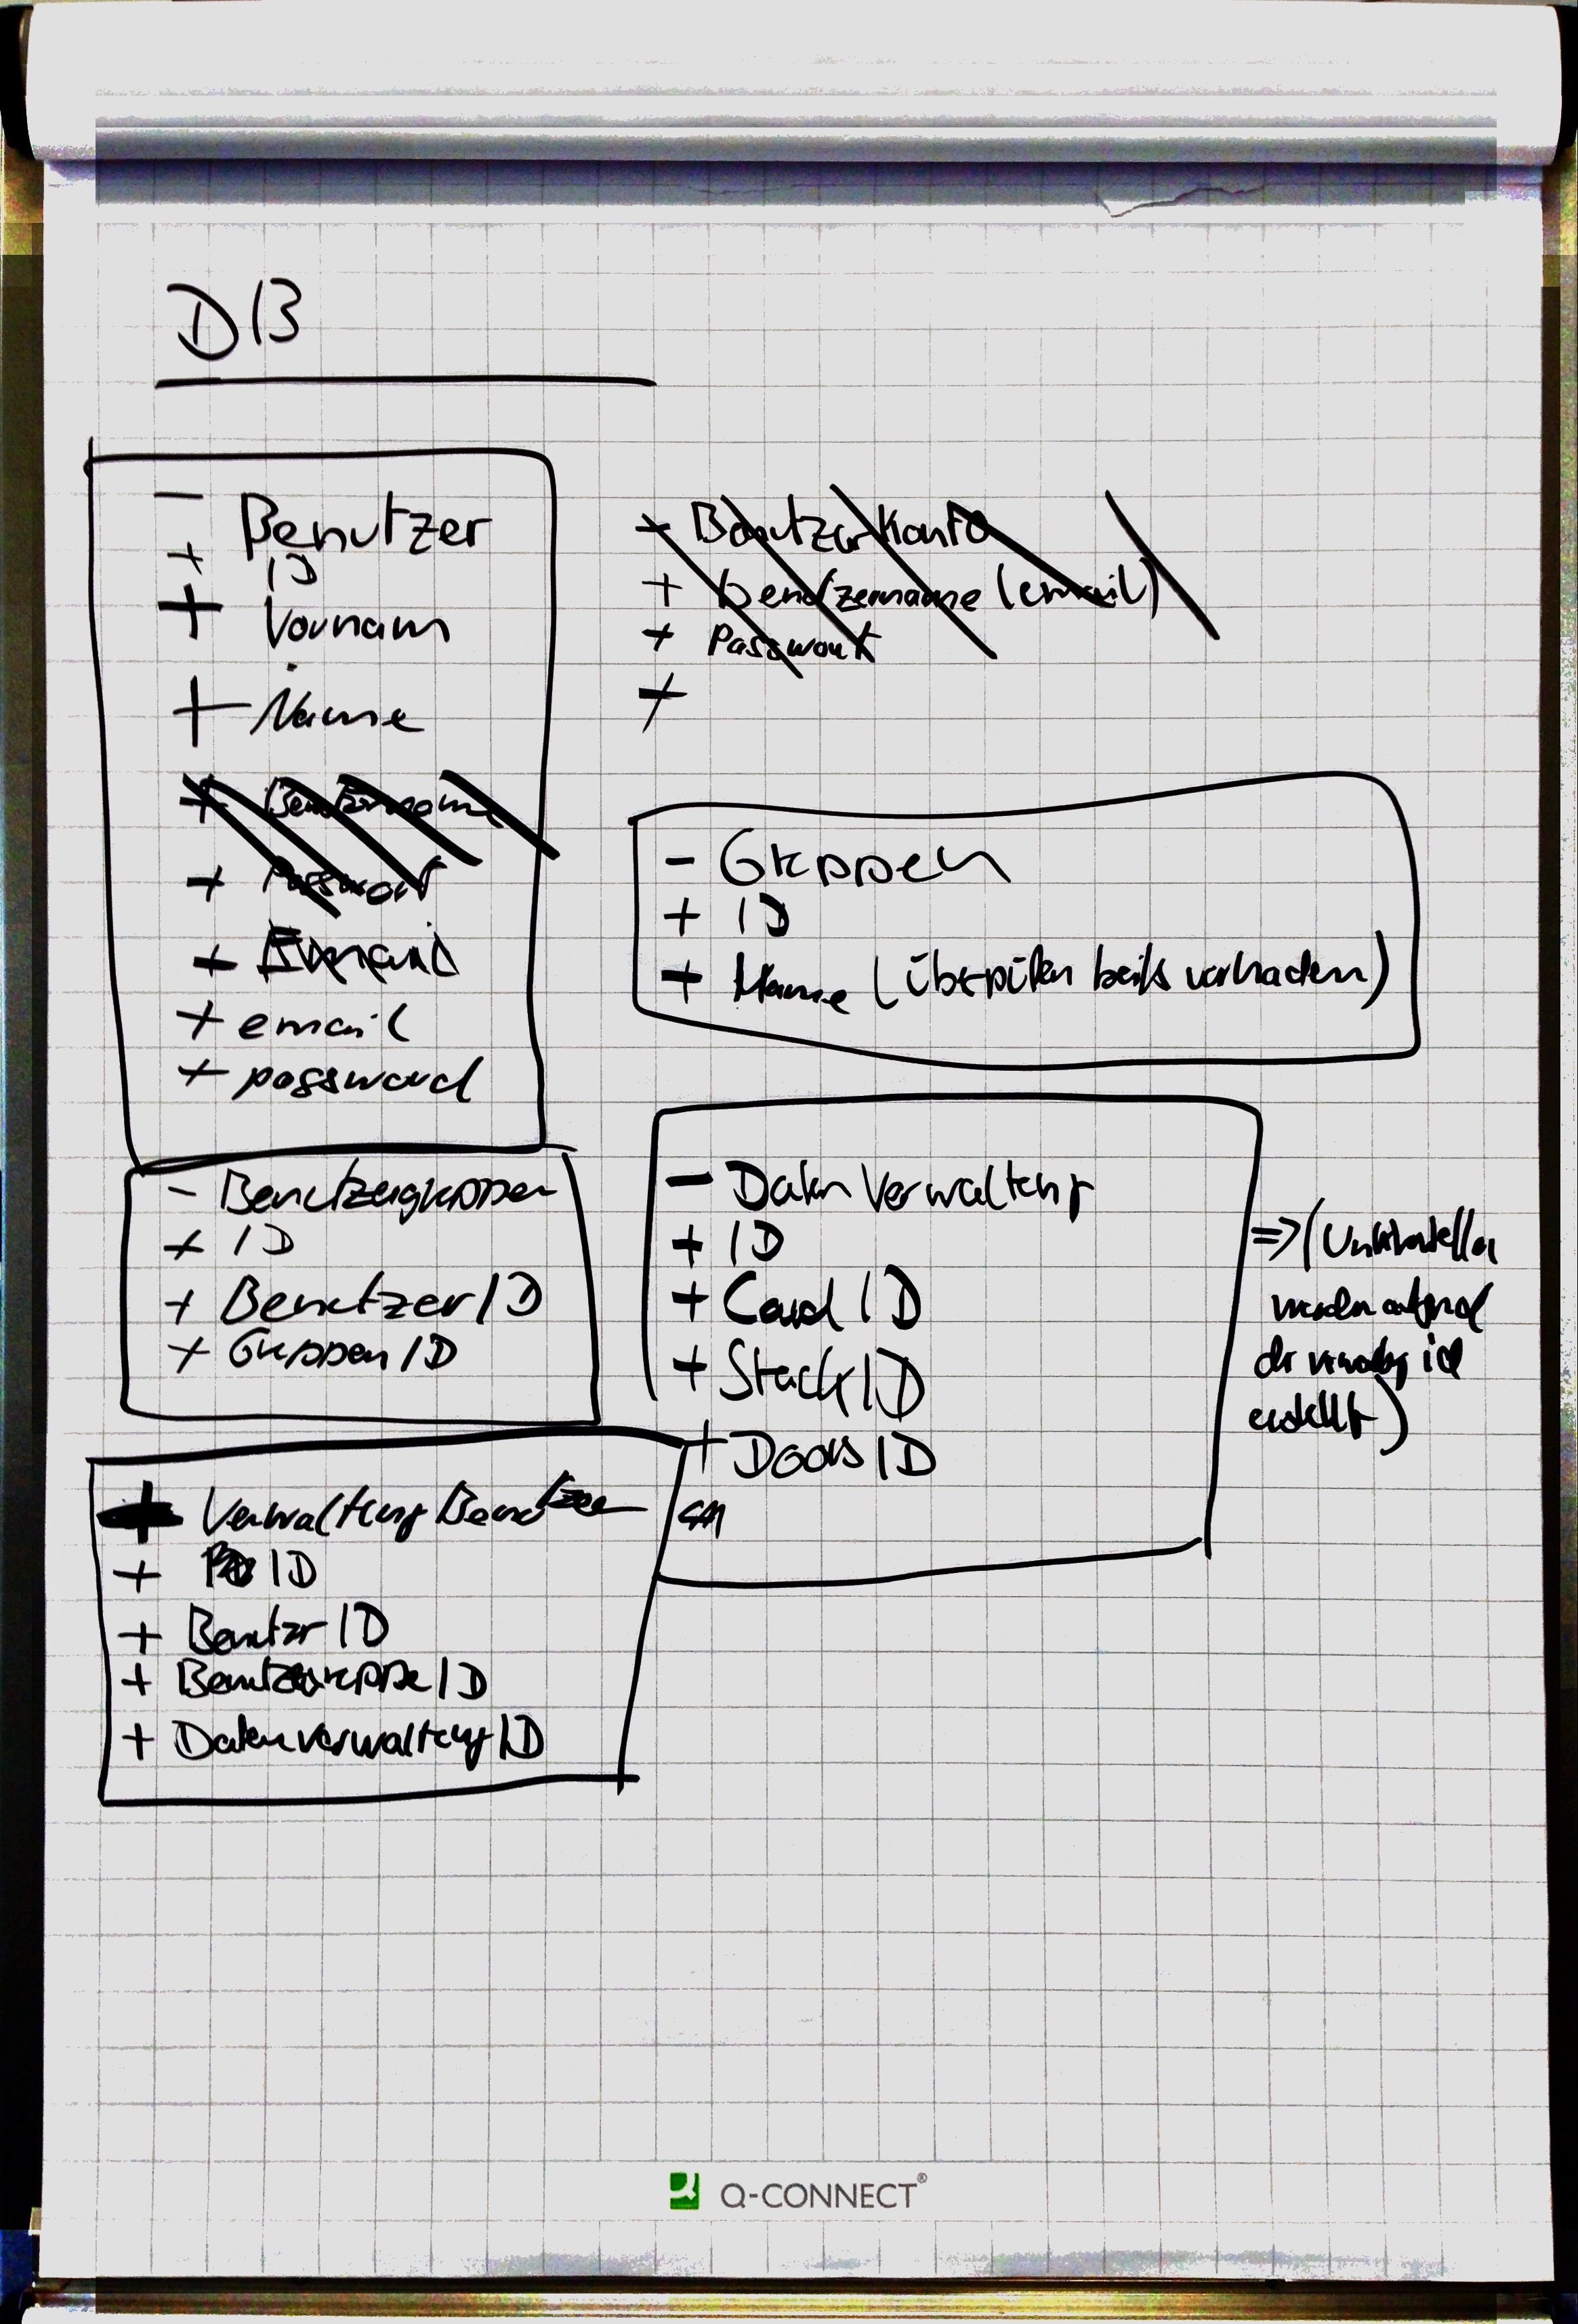 DB
- Benutzer
+ ID
+ Vornam
+ Name
+ Benutzername
+ Passwort
+
+ email
+ password
+ Benutzerkonto
+ benutzername (email)
+ Passwort
+
- Gruppen
+ ID
+ Name (überprüfen bereits vorhaden)
- Benutzergruppen
+ ID
+ Benutzer ID
+ Gruppen ID
- Daten Verwaltung
+ ID
+ Card ID
+ Stack ID
+ Doors ID
=> (
erstellt)
+ Verwaltung Benutzer
+ ID
+ Benutzr ID
+ Benutzergruppe ID
+ Datenverwaltung ID
Q-CONNECT®